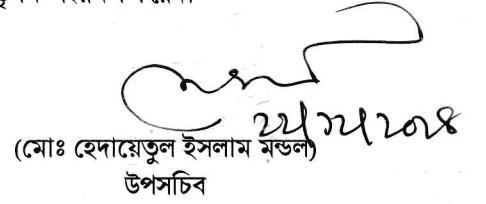 ২২/১২/২০২৪
(মোঃ হেদায়েতুল ইসলাম মন্ডল)
উপসচিব